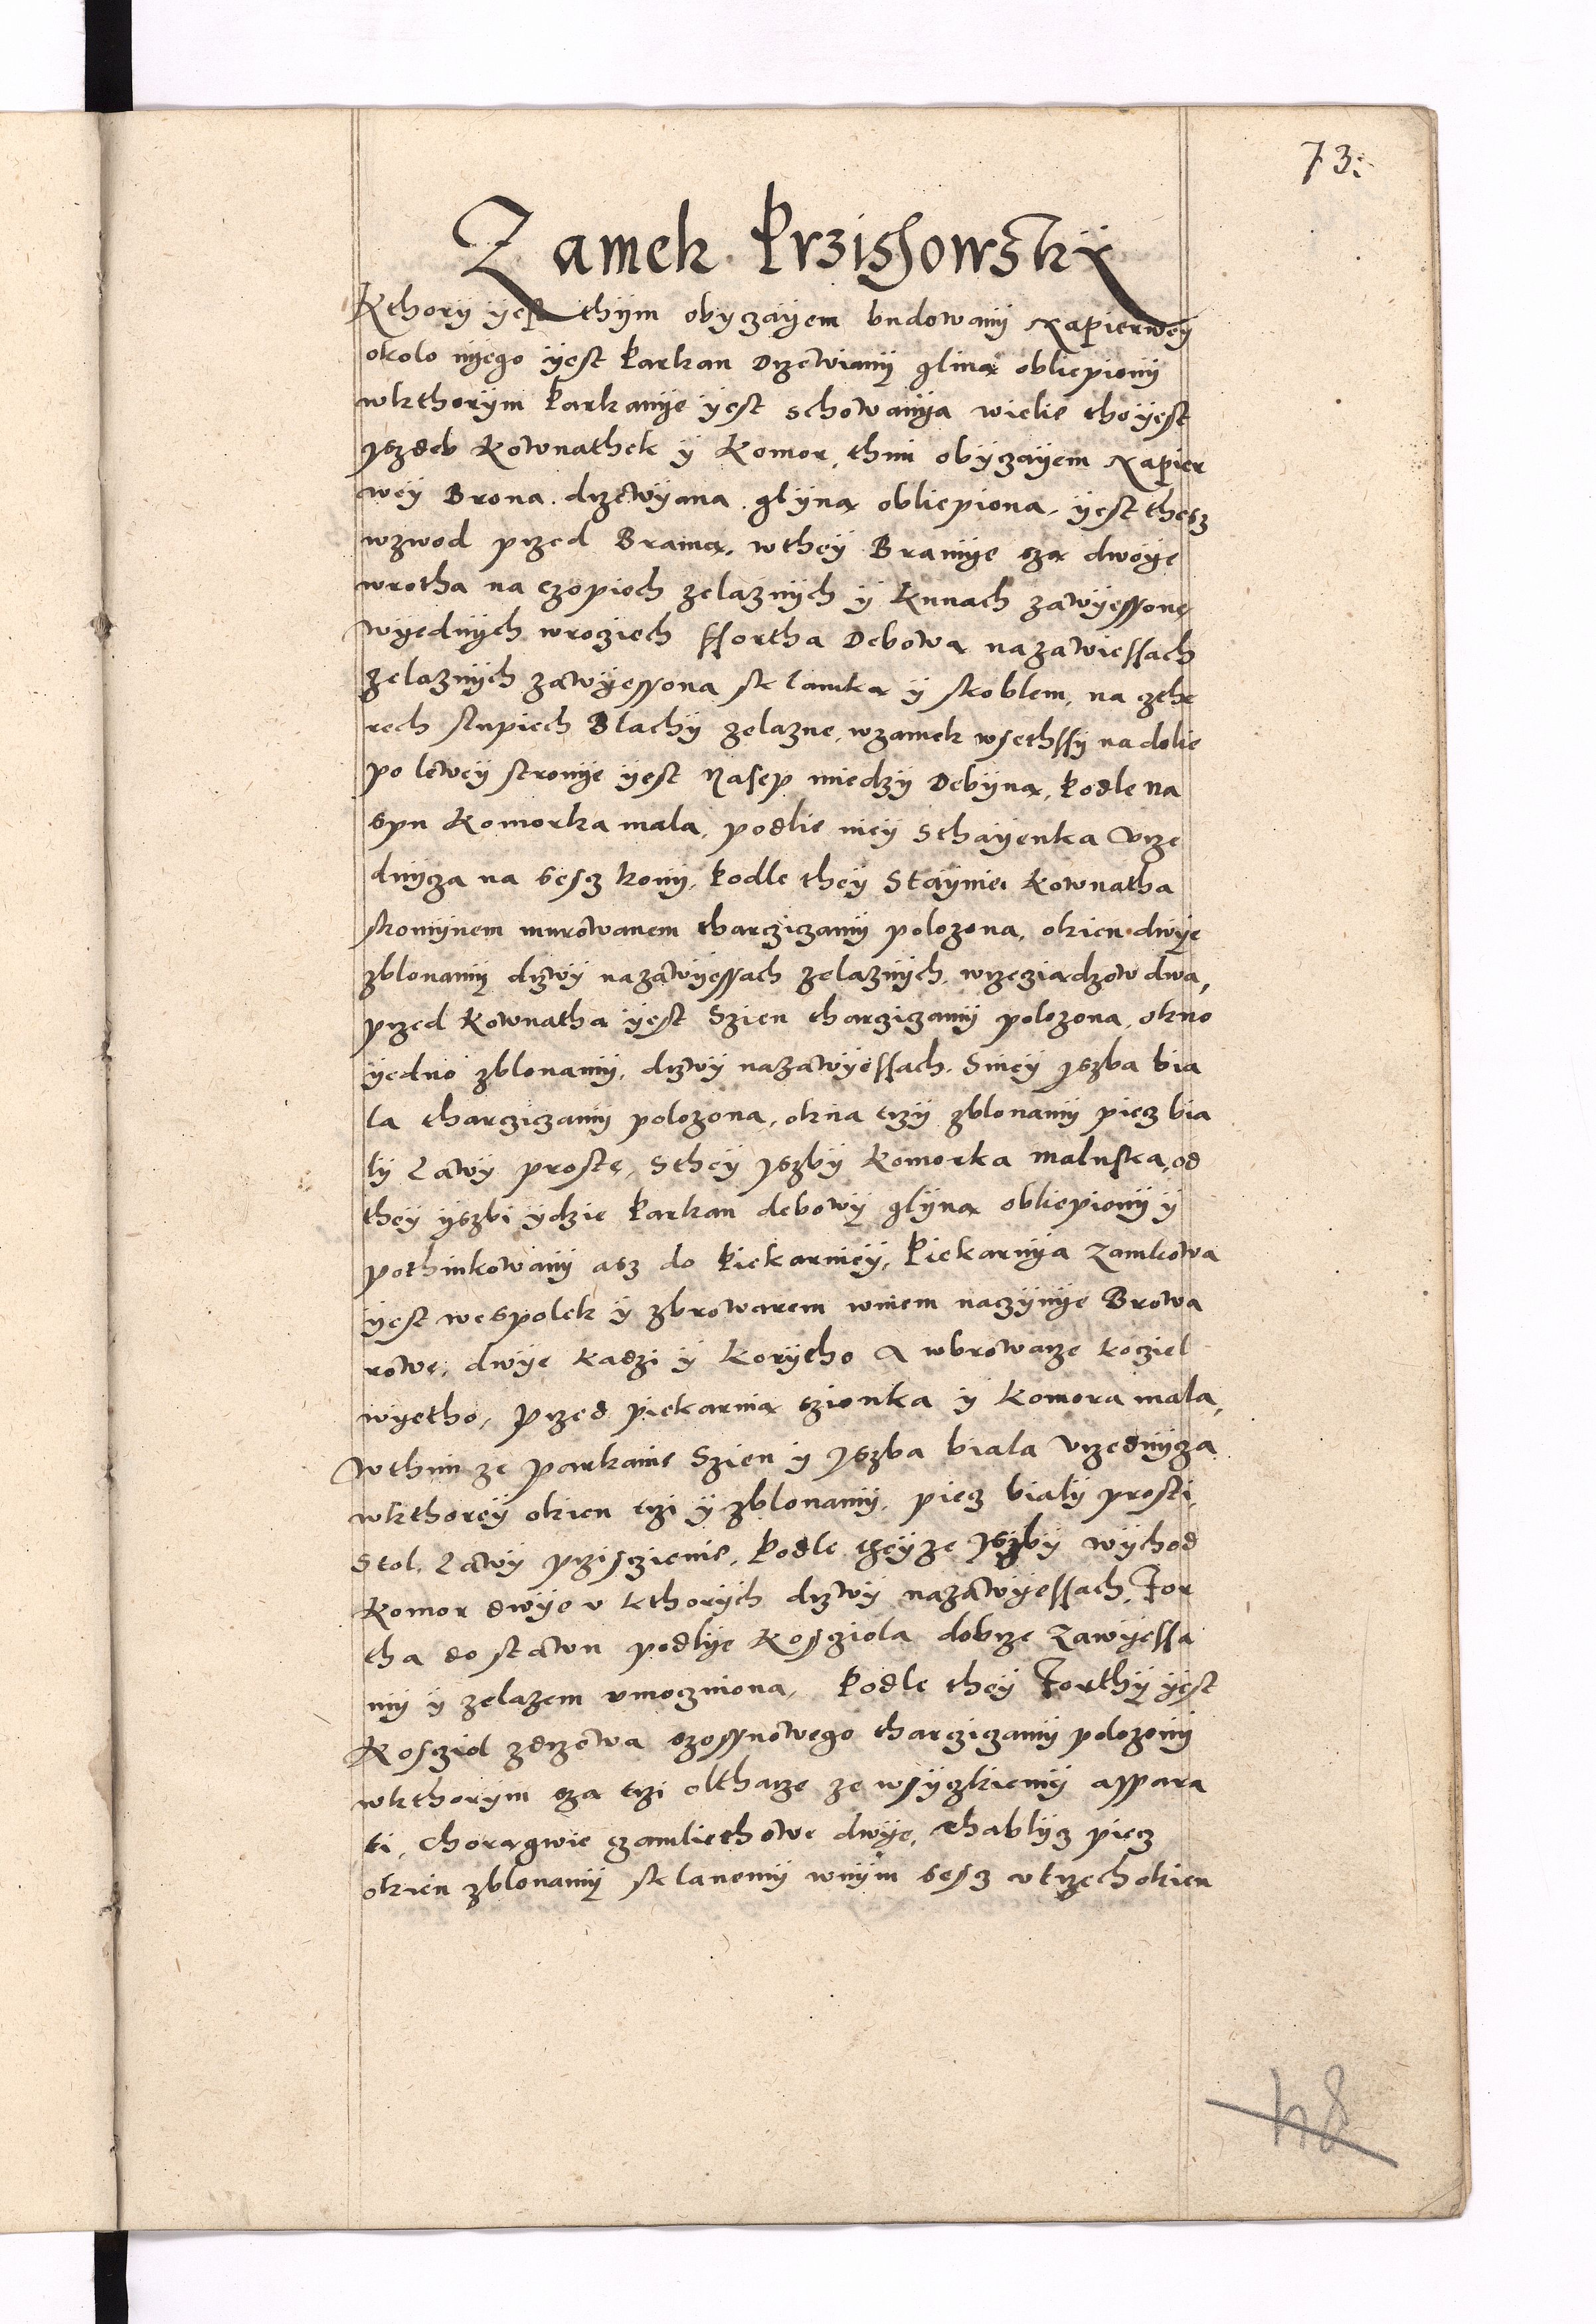 73:
Zamek Przishowsky
Kthory yest thym obyczayem budowany Napierwey
okolo nyego yest Parkan Drzewiany glina obliepiony
wkthorym Parkanye yest schowanya wielie thoyest
yszdeb Kownathek y Komor, thim obyczayem Napier
wey Brona drzewyana glyna obliepiona, yest thesz
wzwod przed Brama, wthey Bramye sza dwoye
wrotha na czopiech zelaznych y Kunach zawyessone,
wyednych wrociech ffortha Debowa nazawiessach
zelaznych zawyessona sklamka y skoblem, na czthe
rech slupiech Blachy zelazne, wzamek wsethssy na dolie
po lewey stronye yest Nasep miedzy Debyna, Podle Na
spu Komorka mala, podlie niey Sthayenka Vrze
dnycza na sesz kony, Podle they Stayniei Kownatha
skomynem murowanem tharczyczamy polozona, okien dwye
zblonamy drzwy nazawyessach zelaznych, wrzecziadzow dwa,
przed Kownatha yest Szien tharczyczamy polozona, okno
yedno zblonamy, drzwy nazawyessach, Sniey yszba bia
la tharczyczamy polozona, okna trzy zblonamy piecz bia
ly Lawy proste, Sthey yszby Komorka maluska, od
they yszbi ydzie Parkan debowy glyna obliepiony y
pothinkowany asz do Piekarniey, Piekarnya Zamkowa
yest wespolek y zbrowarem wniem naczynye Browa
rowe, dwye kadzi y Korytho A wbrowarze kocziel
wyetho, Przed piekarnia szionka y Komora mala,
Wthim ze Parkanie Szien y yszba biala Vrzednycza
wkthorey okien trzi y zblonamy, piecz bialy prosti,
Stol, Lawy prziscienie, Podle theyze yszby wychod
Komor dwye v kthorych drzwy nazawyessach, For
tha do stawu podlye Koscziola dobrze Zawyessa
my y zelazem vmoczniona, Podle they Forthy yest
Kosciol zdrzewa szossnowego tharczyczamy polozony
wkthorym sza trzi oltharze ze wsyzkiemy appara
ti, Choragwie czamliethowe dwye, Thablycz piecz
okien zblonamy sklanemy wnym sesz v trzech okien
84